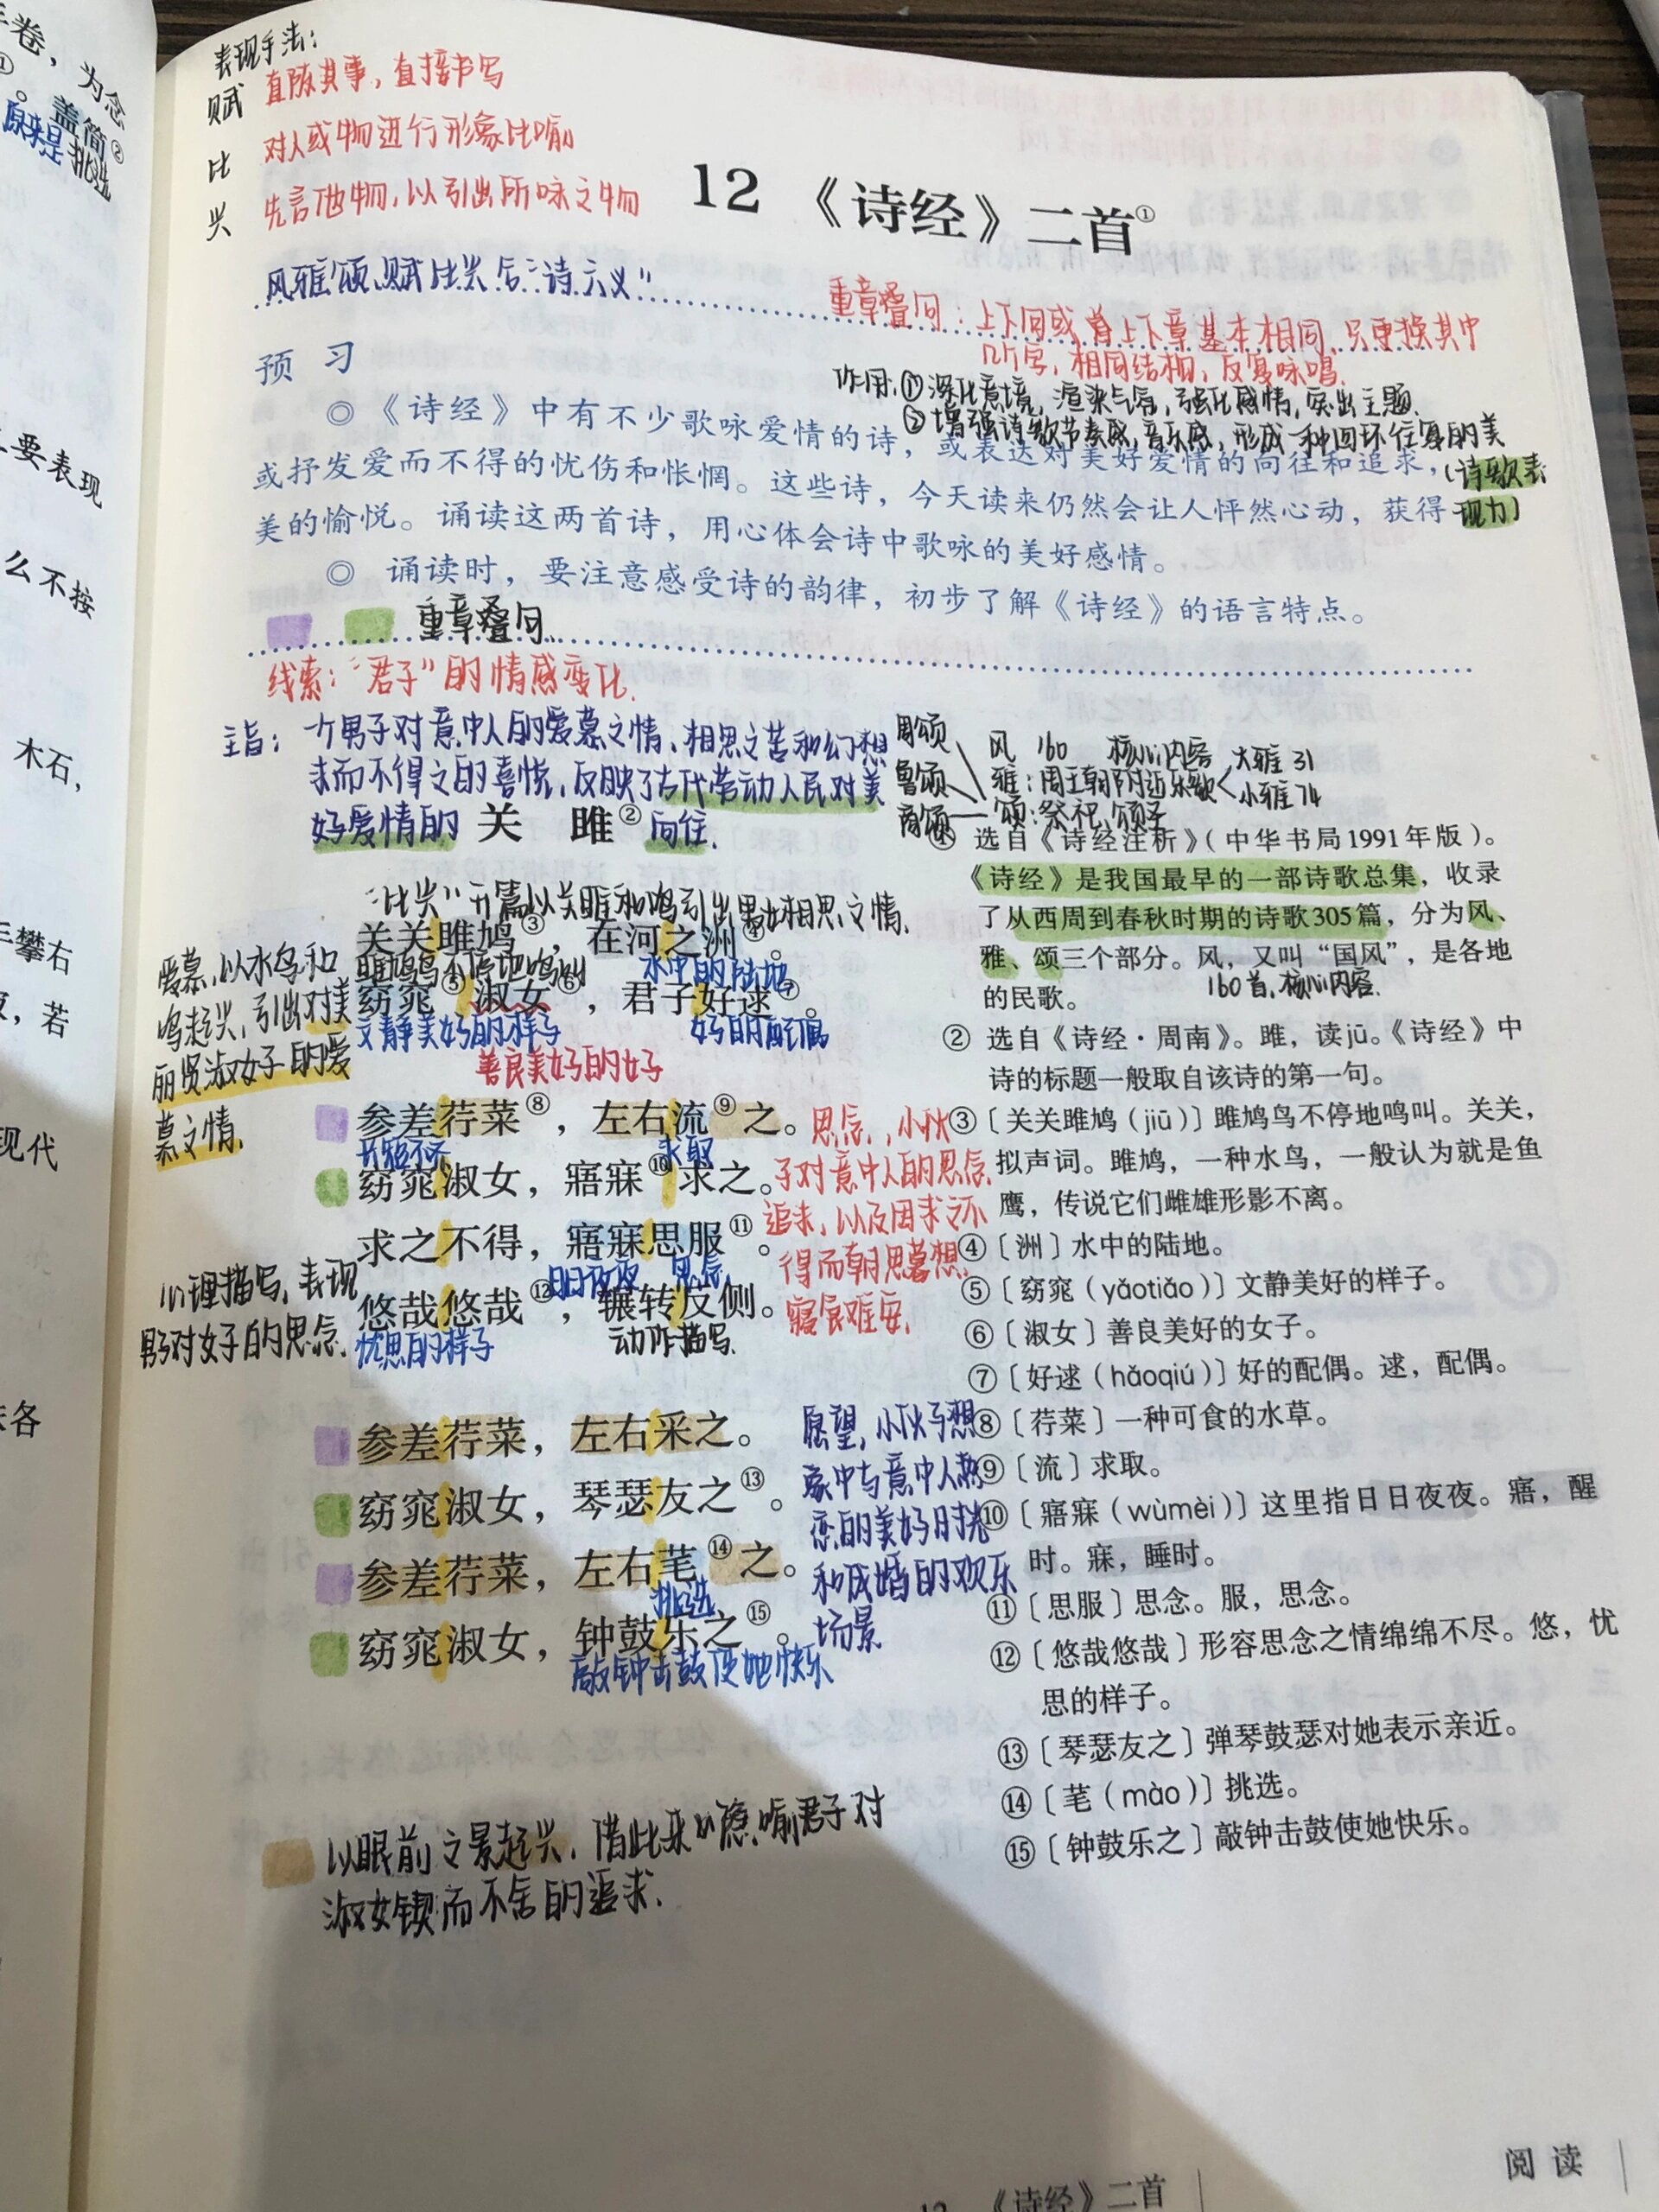 卷，为念
①。盖简②
原来是 挑选
要表现
么不按
木石，
三攀右
，若
现代
各
表现手法：
赋 直陈其事，直接书写
比 对人或物进行形象比喻
兴 先言他物，以引出所咏之物
12 《诗经》二首①
风雅颂、赋比兴合“诗六义”
重章叠句：上下句或者上下章基本相同，只更换其中
几个字，相同结构，反复咏唱.
作用：①深化意境，渲染气氛，强化感情，突出主题.
②增强诗歌节奏感，音乐感，形成一种回环往复的美
（诗歌表
现力）
预 习
◎ 《诗经》中有不少歌咏爱情的诗，或表达对美好爱情的向往和追求，
或抒发爱而不得的忧伤和怅惘。这些诗，今天读来仍然会让人怦然心动，获得
美的愉悦。诵读这两首诗，用心体会诗中歌咏的美好感情。
◎ 诵读时，要注意感受诗的韵律，初步了解《诗经》的语言特点。
重章叠句
线索：“君子”的情感变化.
主旨：一个男子对意中人的爱慕之情、相思之苦和幻想
求而不得之的喜悦，反映了古代劳动人民对美
好爱情的向往.
关 雎②
“比兴”开篇以关雎和鸣引出男女相思之情.
关关雎鸠③，在河之洲④。
雎鸠鸟不停地鸣叫 水中的陆地
窈窕⑤淑女⑥，君子好逑⑦。
文静美好的样子 好的配偶
善良美好的女子
爱慕，以水鸟和
鸣起兴，引出对美
丽贤淑女子的爱
慕之情.
参差荇菜⑧，左右流⑨之。
长短不齐 求取
窈窕淑女，寤寐⑩求之。
求之不得，寤寐思服⑪。
日日夜夜 思念
悠哉悠哉⑫，辗转反侧。
忧思的样子 动作描写.
思念，小伙
子对意中人的思念.
追求，以及因求之不
得而朝思暮想，
寝食难安.
心理描写，表现
男子对女子的思念.
参差荇菜，左右采之。
窈窕淑女，琴瑟友之⑬。
参差荇菜，左右芼⑭之。
挑选
窈窕淑女，钟鼓乐之⑮。
敲钟击鼓使她快乐
愿望，小伙子想
象中与意中人热
恋的美好时光
和成婚的欢乐
场景
以眼前之景起兴，借此来以隐喻君子对
淑女锲而不舍的追求.
周颂
鲁颂
商颂
风 160 核心内容
雅：周王朝附近乐歌 大雅 31
小雅 74
颂：祭祀、颂圣
① 选自《诗经注析》（中华书局1991年版）。
《诗经》是我国最早的一部诗歌总集，收录
了从西周到春秋时期的诗歌305篇，分为风、
雅、颂三个部分。风，又叫“国风”，是各地
的民歌。
160首，核心内容.
② 选自《诗经·周南》。雎，读jū。《诗经》中
诗的标题一般取自该诗的第一句。
③〔关关雎鸠（jiū）〕雎鸠鸟不停地鸣叫。关关，
拟声词。雎鸠，一种水鸟，一般认为就是鱼
鹰，传说它们雌雄形影不离。
④〔洲〕水中的陆地。
⑤〔窈窕（yǎotiǎo）〕文静美好的样子。
⑥〔淑女〕善良美好的女子。
⑦〔好逑（hǎoqiú）〕好的配偶。逑，配偶。
⑧〔荇菜〕一种可食的水草。
⑨〔流〕求取。
⑩〔寤寐（wùmèi）〕这里指日日夜夜。寤，醒
时。寐，睡时。
⑪〔思服〕思念。服，思念。
⑫〔悠哉悠哉〕形容思念之情绵绵不尽。悠，忧
思的样子。
⑬〔琴瑟友之〕弹琴鼓瑟对她表示亲近。
⑭〔芼（mào）〕挑选。
⑮〔钟鼓乐之〕敲钟击鼓使她快乐。
阅 读
12 《诗经》二首